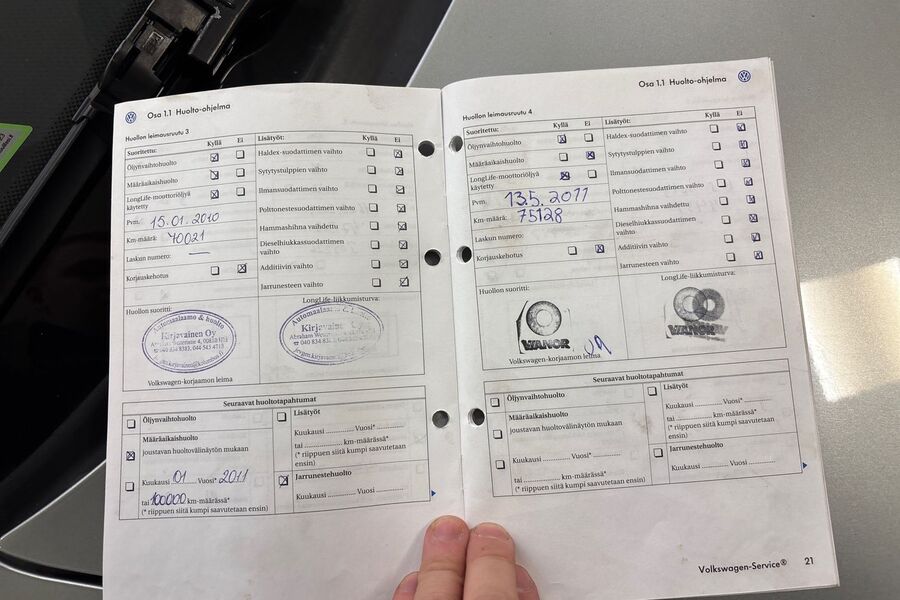 Osa 1.1 Huolto-ohjelma
Huollon leimausruutu 3
Suoritettu: Kyllä Ei
Öljynvaihtohuolto
Määräaikaishuolto
LongLife-moottoriöljyä
käytetty
Pvm. 15.01.2010
Km-määrä: 40021
Laskun numero:
Korjauskehotus
Lisätyöt: Kyllä Ei
Haldex-suodattimen vaihto
Sytytystulppien vaihto
Ilmansuodattimen vaihto
Polttonestesuodattimen vaihto
Hammashihna vaihdettu
Dieselhiukkassuodattimen
vaihto
Additiivin vaihto
Jarrunesteen vaihto
Huollon suoritti:
Automaalaamo & huolto
Kirjavainen Oy
Volkswagen-korjaamon leima
LongLife-liikkumisturva:
Automaalaamo &
Kirjavainen
Seuraavat huoltotapahtumat
Öljynvaihtohuolto
Määräaikaishuolto
joustavan huoltovälinäytön mukaan
Kuukausi 01 Vuosi* 2011
tai 100000 km-määrässä*
(* riippuen siitä kumpi saavutetaan ensin)
Lisätyöt
Kuukausi ............ Vuosi* ............
tai ............ km-määrässä*
(* riippuen siitä kumpi saavutetaan
ensin)
Jarrunestehuolto
Kuukausi ............ Vuosi ............
Osa 1.1 Huolto-ohjelma
Huollon leimausruutu 4
Suoritettu: Kyllä Ei
Öljynvaihtohuolto
Määräaikaishuolto
LongLife-moottoriöljyä
käytetty
Pvm. 13.5.2011
Km-määrä: 75128
Laskun numero:
Korjauskehotus
Lisätyöt: Kyllä Ei
Haldex-suodattimen vaihto
Sytytystulppien vaihto
Ilmansuodattimen vaihto
Polttonestesuodattimen vaihto
Hammashihna vaihdettu
Dieselhiukkassuodattimen
vaihto
Additiivin vaihto
Jarrunesteen vaihto
Huollon suoritti:
VIANOR
Volkswagen-korjaamon leima
LongLife-liikkumisturva:
VIANOR
Seuraavat huoltotapahtumat
Öljynvaihtohuolto
Määräaikaishuolto
joustavan huoltovälinäytön mukaan
Kuukausi ............ Vuosi* ............
tai ............ km-määrässä*
(* riippuen siitä kumpi saavutetaan ensin)
Lisätyöt
Kuukausi ............ Vuosi* ............
tai ............ km-määrässä*
(* riippuen siitä kumpi saavutetaan
ensin)
Jarrunestehuolto
Kuukausi ............ Vuosi ............
Volkswagen-Service® 21